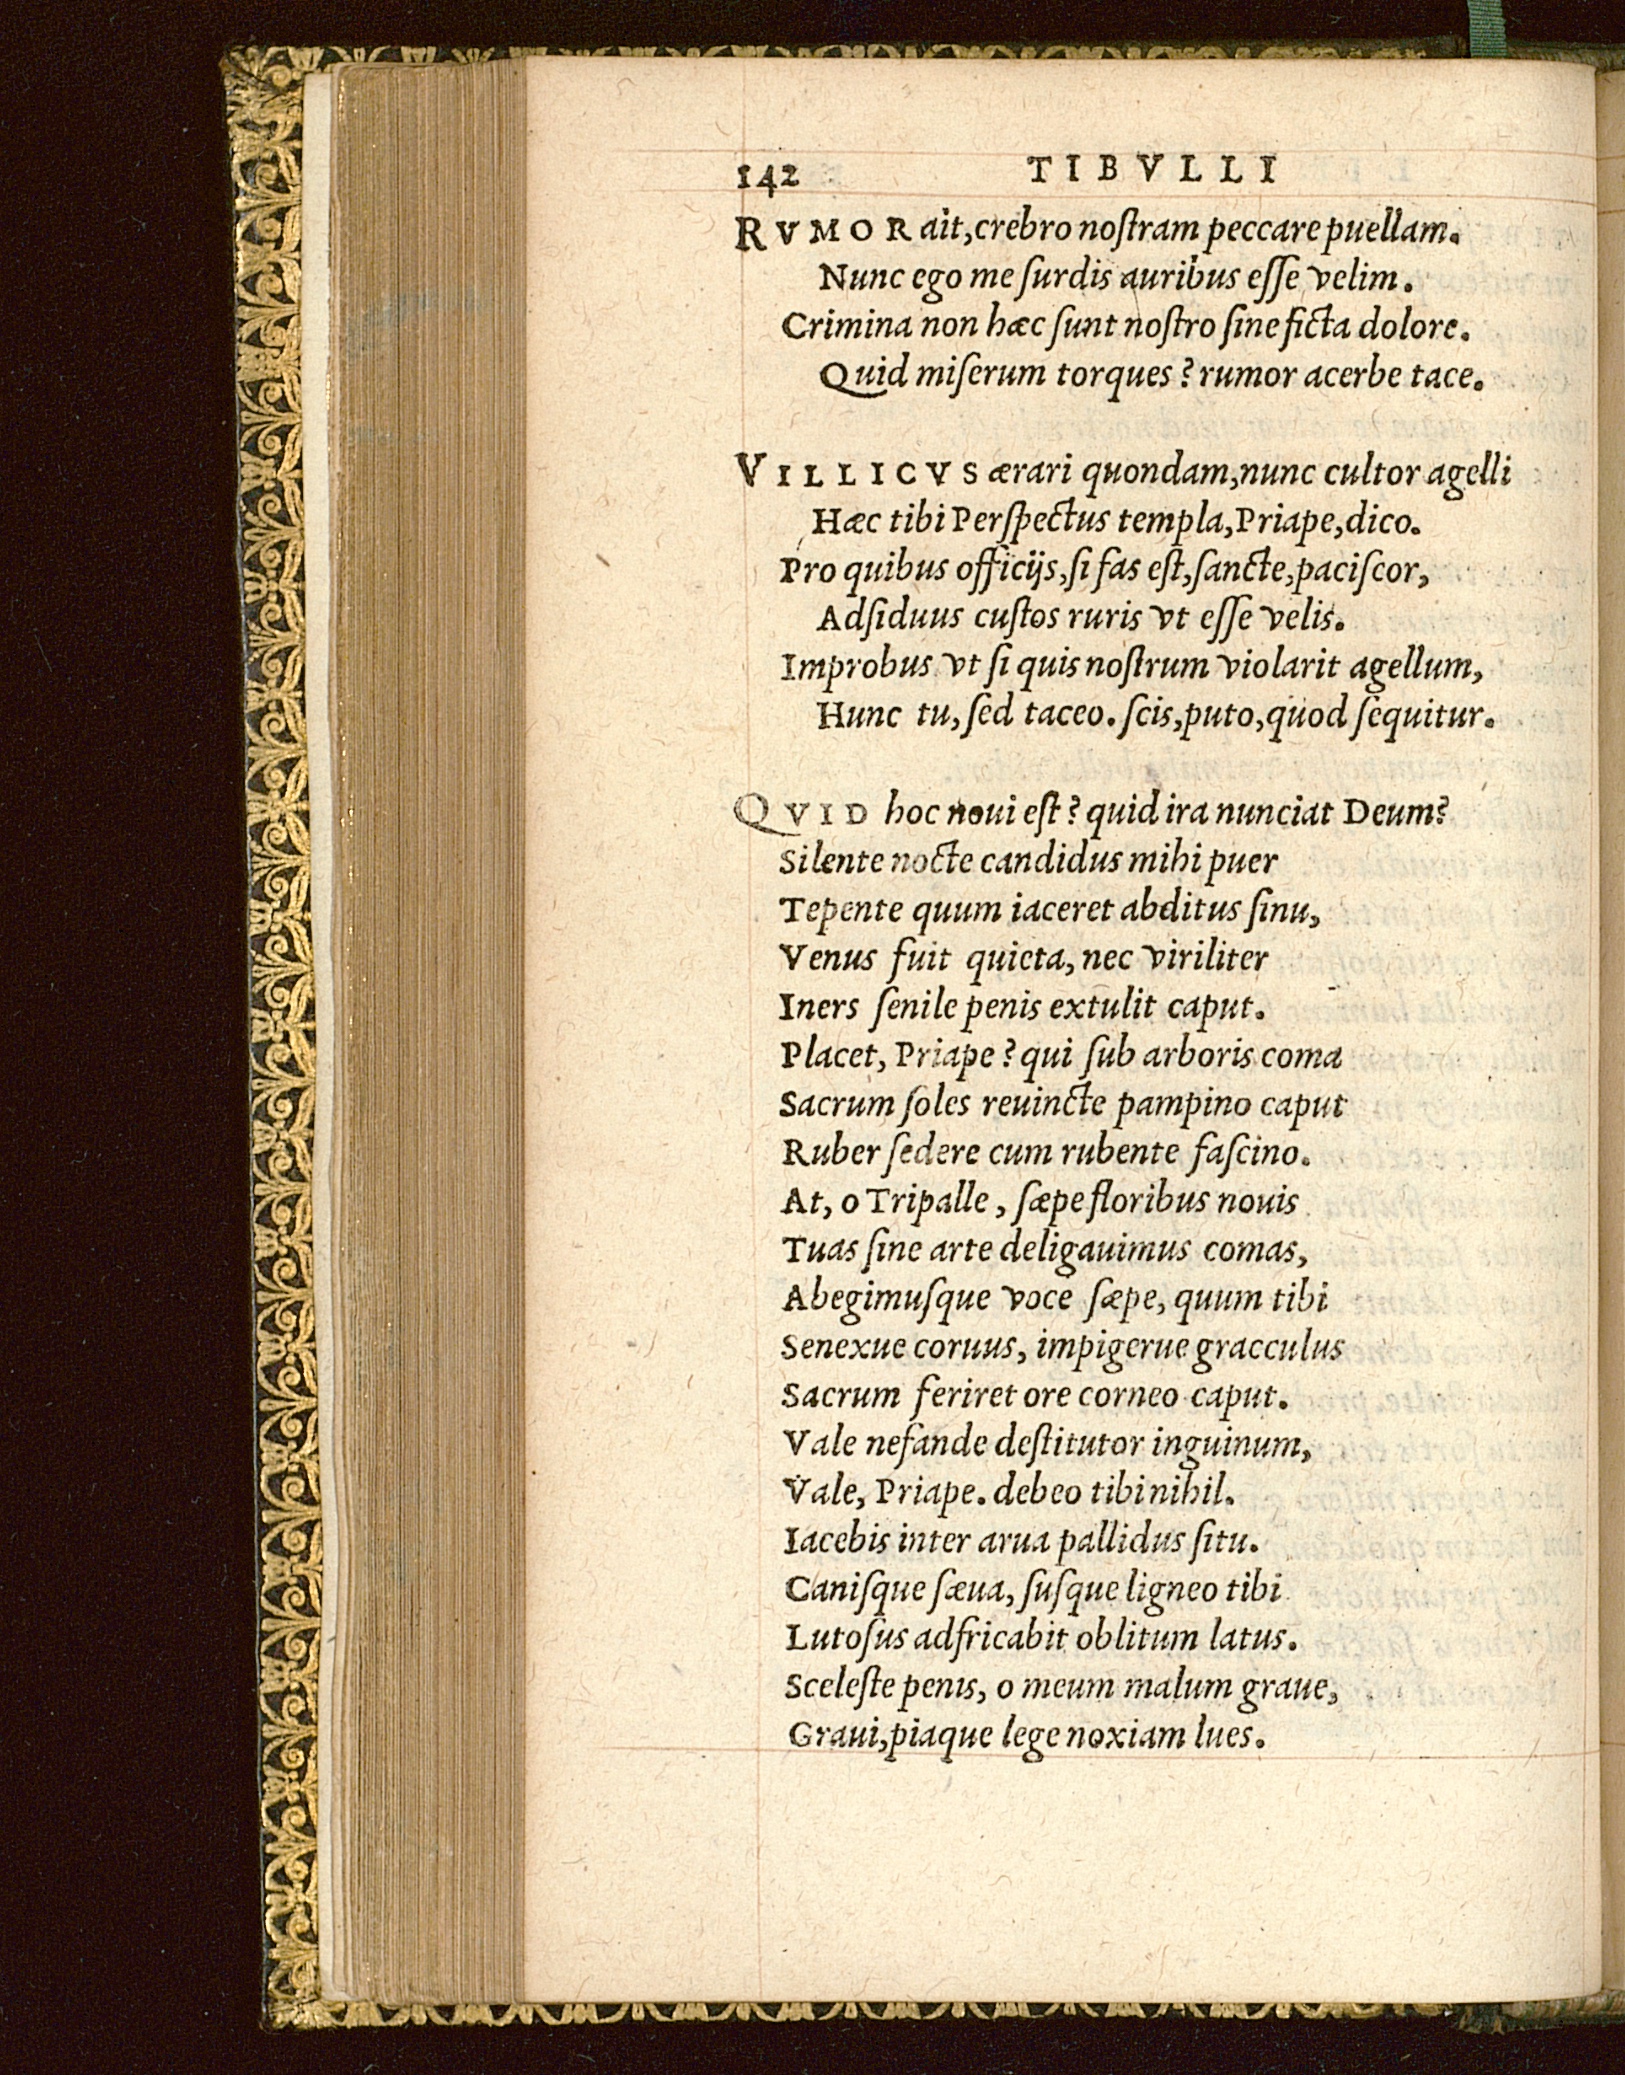 142 TIBVLLI
RVMOR ait, crebro noſtram peccare puellam.
Nunc ego me ſurdis auribus eſſe velim.
Crimina non hæc ſunt noſtro ſine ficta dolore.
Quid miſerum torques? rumor acerbe tace.
VILLICVS ærari quondam, nunc cultor agelli
Hæc tibi Perſpectus templa, Priape, dico.
Pro quibus officijs, ſi fas eſt, ſancte, paciſcor,
Adſiduus cuſtos ruris vt eſſe velis.
Improbus vt ſi quis noſtrum violarit agellum,
Hunc tu, ſed taceo. ſcis, puto, quod ſequitur.
QVID hoc noui eſt? quid ira nunciat Deum?
Silente nocte candidus mihi puer
Tepente quum iaceret abditus ſinu,
Venus fuit quieta, nec viriliter
Iners ſenile penis extulit caput.
Placet, Priape? qui ſub arboris coma
Sacrum ſoles reuincte pampino caput
Ruber ſedere cum rubente faſcino.
At, o Tripalle, ſæpe floribus nouis
Tuas ſine arte deligauimus comas,
Abegimuſque voce ſæpe, quum tibi
Senexue coruus, impigerue gracculus
Sacrum feriret ore corneo caput.
Vale nefande deſtitutor inguinum,
Vale, Priape. debeo tibi nihil.
Iacebis inter arua pallidus ſitu.
Caniſque ſæua, ſuſque ligneo tibi
Lutoſus adfricabit oblitum latus.
Sceleſte penis, o meum malum graue,
Graui, piaque lege noxiam lues.